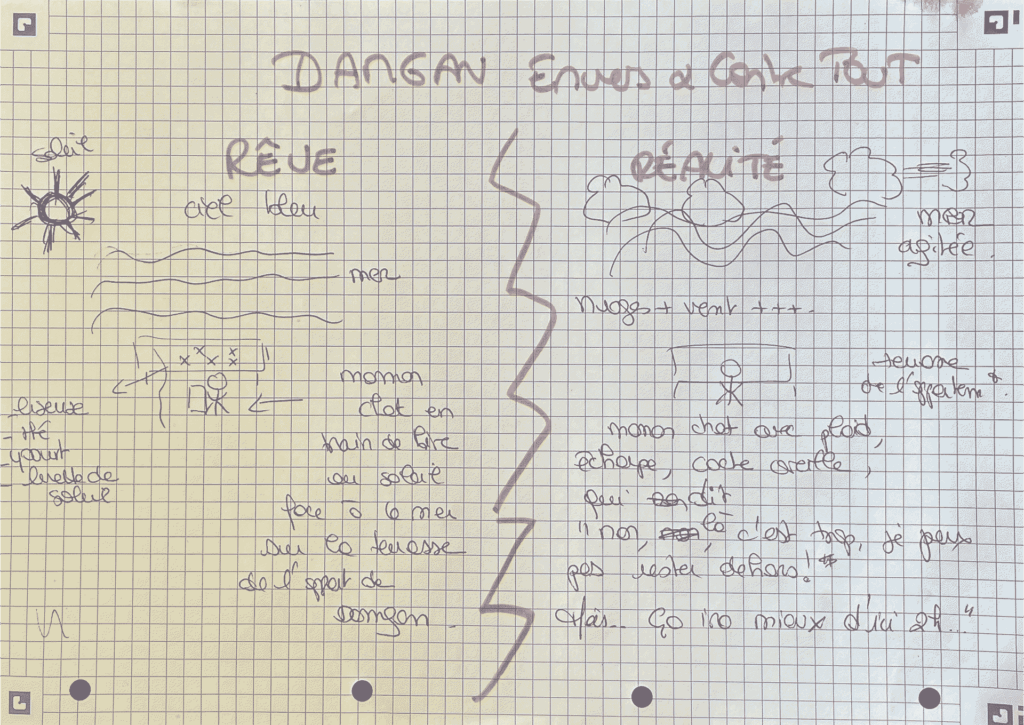 DANGAN Envers & Contre TOUT
RÊVE
soleil
ciel bleu
mer
- liseuse
- thé
- yaourt
- lunette de
soleil
maman
chat en
train de lire
au soleil
face à la mer
sur la terrasse
de l'appart de
Dangan.
RÉALITÉ
mer
agitée.
nuages + vent +++.
terrasse
de l'appartemt.
maman chat avec plaid,
écharpe, cache oreille,
qui dit
"non, là, c'est trop, je peux
pas rester dehors!
Mais... ça ira mieux d'ici 2h..."